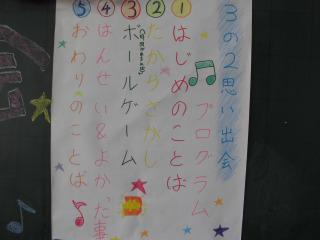 3の2思い出会
プログラム
①はじめのことば
②たからさがし
③ボールゲーム
④はんせい&よかった事
⑤おわりのことば